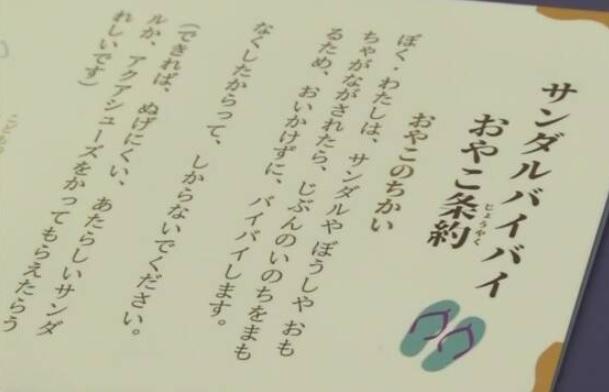 サンダルバイバイ
おやこ条約
じょうやく
おやこのちかい
ぼく・わたしは、サンダルや ぼうしや おも
ちゃがながされたら、じぶんのいのちをまも
るため、おいかけずに、バイバイします。
なくしたからって、しからないでください。
(できれば、ぬげにくい、あたらしいサンダ
ルか、アクアシューズをかってもらえたらう
れしいです)